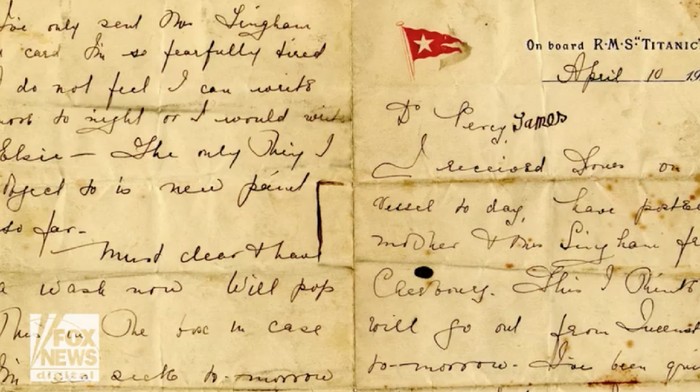 I've only sent Mrs Lingham
card I'm so fearfully tired
I do not feel I can write
more to night or I would
Elsie — The only thing I
object to is new paint
so far.
Must clear & have
a wash now Will pop
This in The box in case
I'm sick to-morrow
FOX
NEWS
digital
On board R·M·S·"TITANIC"
April 10 19
Dr Percy James
I received Yours on
vessel to day, have posted
mother & Mrs Lingham
Cherbourg. This I Think
will go out from
to-morrow. I've been